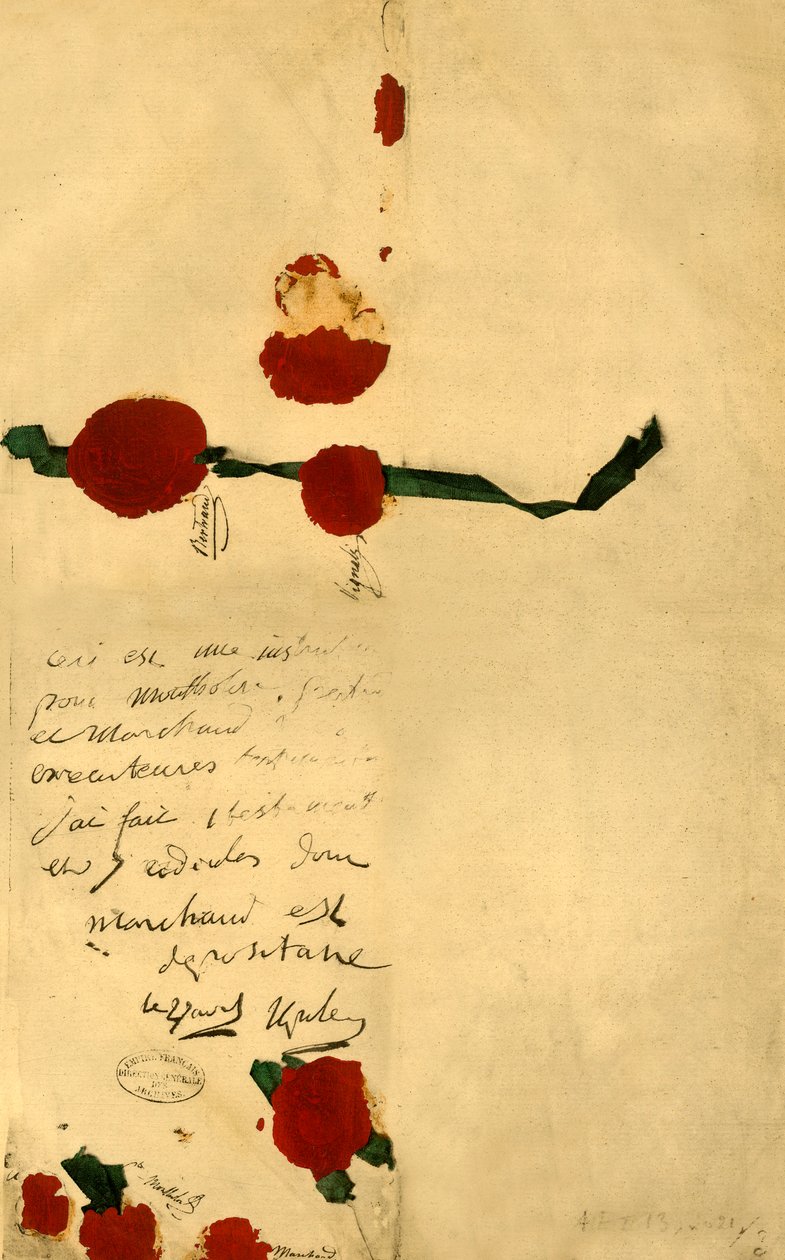 Bertrand
Vignali
ceci est une instruction
pour montholon, Bertrand
et Marchand
executeures testamentaires
j'ai fait 1 testament
et 7 codiciles dont
marchand est
depositaire
le 27 avril Napoleon
EMPIRE FRANÇAIS
DIRECTION GÉNÉRALE
DES
ARCHIVES.
Montholon
Marchand